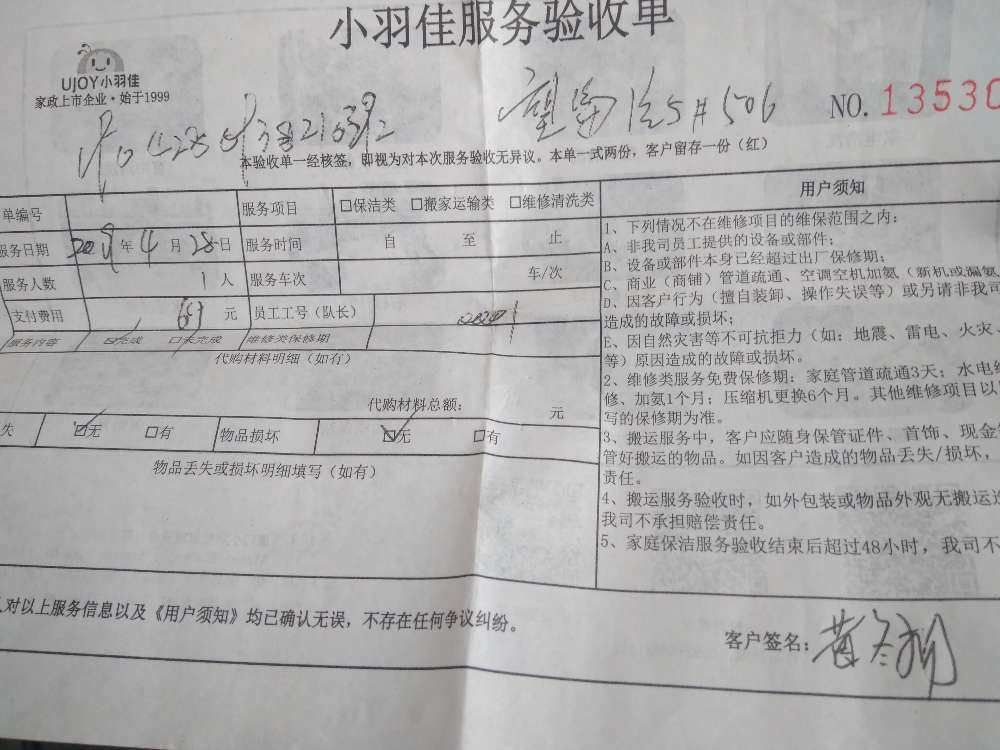 小羽佳服务验收单
UJOY小羽佳
家政上市企业·始于1999
5#506
NO.13530
本验收单一经核签，即视为对本次服务验收无异议。本单一式两份，客户留存一份（红）
单编号
服务项目 □保洁类 □搬家运输类 □维修清洗类
服务日期 年4月28日 服务时间 自 至 止
服务人数 1人 服务车次 车/次
支付费用 元 员工工号（队长）
服务内容 ☑完成 □未完成 维修类保修期
代购材料明细（如有）
代购材料总额： 元
失 ☑无 □有 物品损坏 ☑无 □有
物品丢失或损坏明细填写（如有）
用户须知
1、下列情况不在维修项目的维保范围之内：
A、非我司员工提供的设备或部件；
B、设备或部件本身已经超过出厂保修期；
C、商业（商铺）管道疏通、空调空机加氨（新机或漏氨
D、因客户行为（擅自装卸、操作失误等）或另请非我司
造成的故障或损坏；
E、因自然灾害等不可抗拒力（如：地震、雷电、火灾、
等）原因造成的故障或损坏。
2、维修类服务免费保修期：家庭管道疏通3天；水电维
修、加氨1个月；压缩机更换6个月。其他维修项目以
写的保修期为准。
3、搬运服务中，客户应随身保管证件、首饰、现金
管好搬运的物品。如因客户造成的物品丢失/损坏，
责任。
4、搬运服务验收时，如外包装或物品外观无搬运造
我司不承担赔偿责任。
5、家庭保洁服务验收结束后超过48小时，我司不
人对以上服务信息以及《用户须知》均已确认无误，不存在任何争议纠纷。
客户签名：